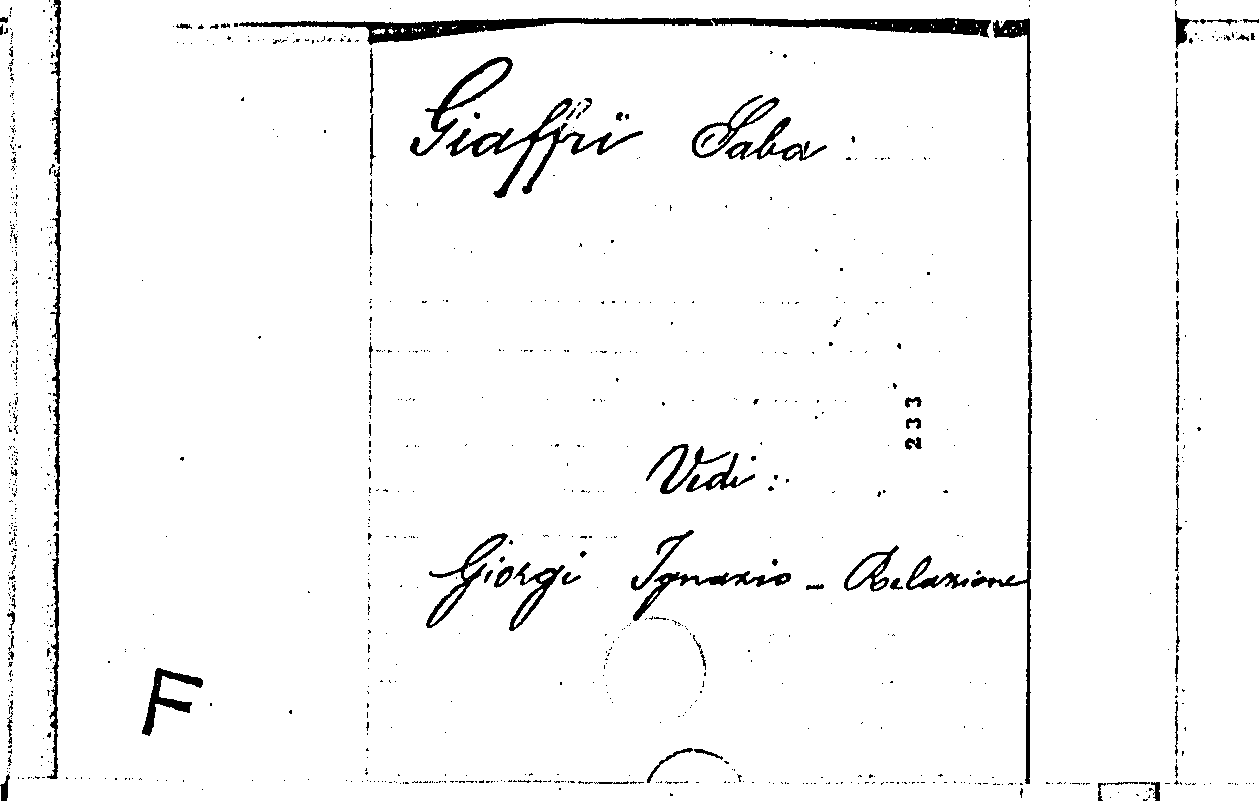 Giaffri Saba:
233
Vedi:
Giorgi Ignazio - Relazione
F